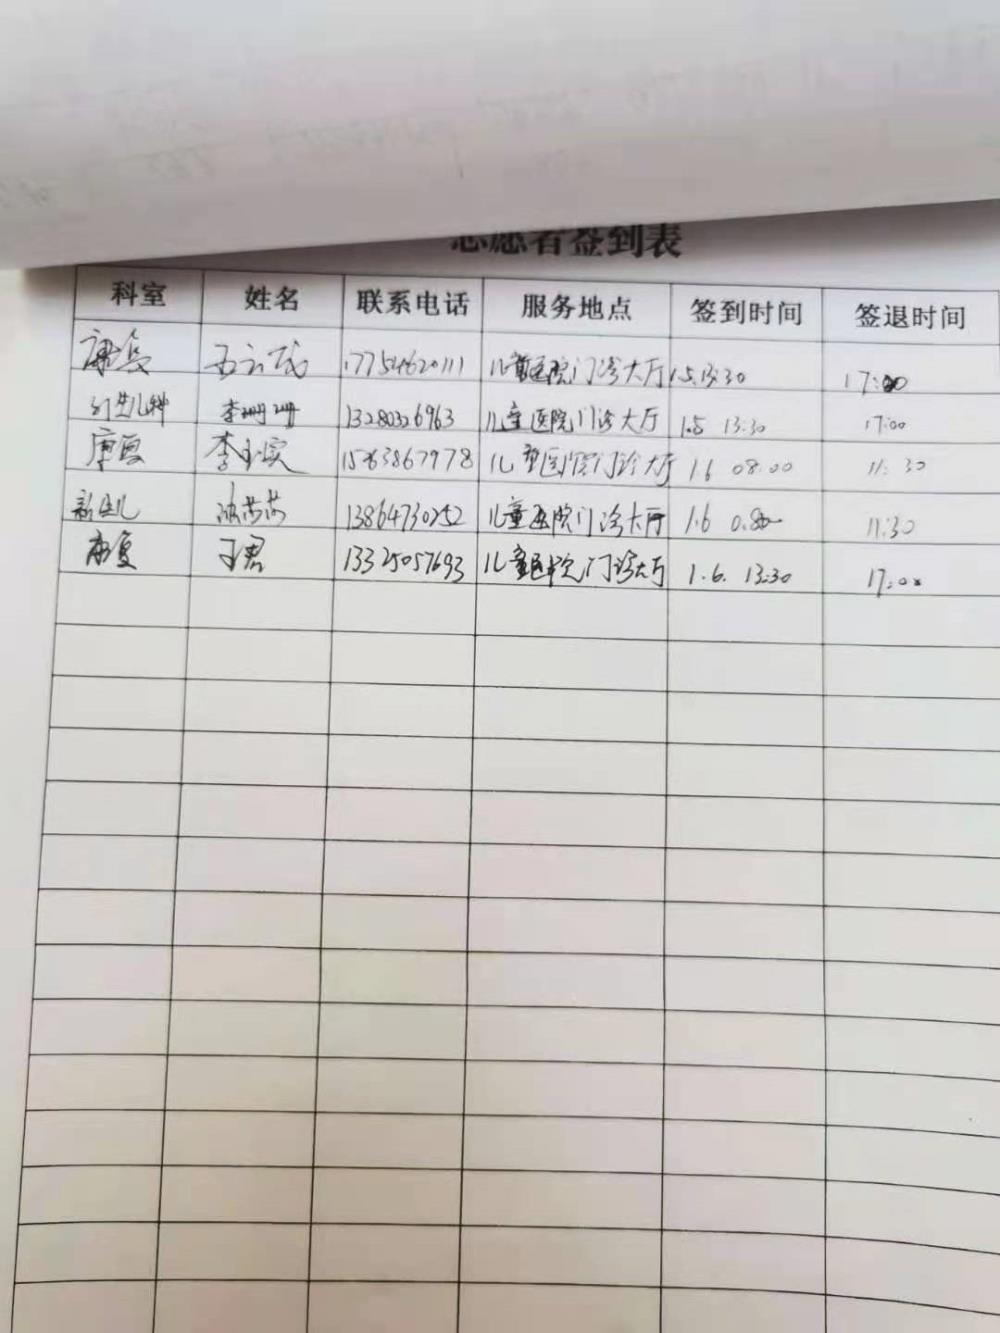 志愿者签到表
科室 姓名 联系电话 服务地点 签到时间 签退时间
康复 17754620111 儿童医院门诊大厅 1.5 13:30 17:00
李珊珊 13280326963 儿童医院门诊大厅 1.5 13:30 17:00
康复 李 15863867978 儿童医院门诊大厅 1.6 08:00 11:30
新生儿 13864730252 儿童医院门诊大厅 1.6 11:30
康复 于君 13325057693 儿童医院门诊大厅 1.6. 13:30 17:00